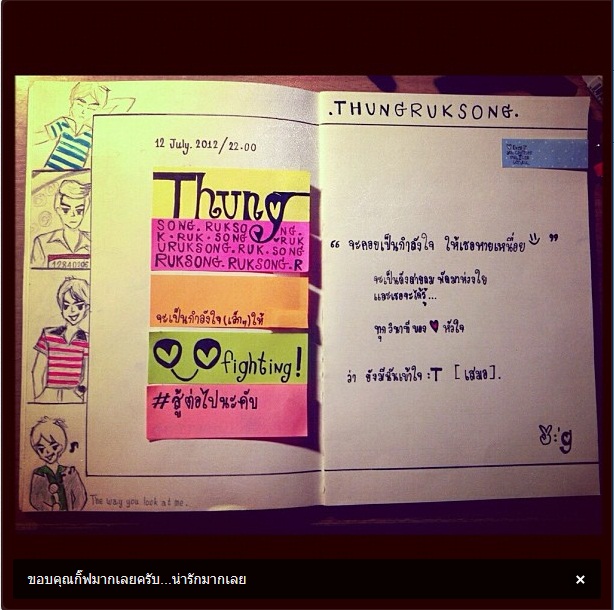 12 July. 2012/22.00
Thung
SONG. RUKSO NG.
K. RUK. SONG. RUK
URUKSONG. RUK. SONG
RUKSONG. RUKSONG. R
จะเป็นกำลังใจ(เล็กๆ)ให้
fighting!
#สู้ต่อไปนะคับ
The way you look at me.
.THUNGRUKSONG.
“ จะคอยเป็นกำลังใจ ให้เธอหายเหนื่อย ”
จะเป็นดังสายลม พัดมาห่วงใย
และเธอจะได้รู้...
ทุกวินาที ของ หัวใจ
ว่า ยังมีฉันเข้าใจ :T [เสมอ].
ขอบคุณกิ๊ฟมากเลยครับ...น่ารักมากเลย